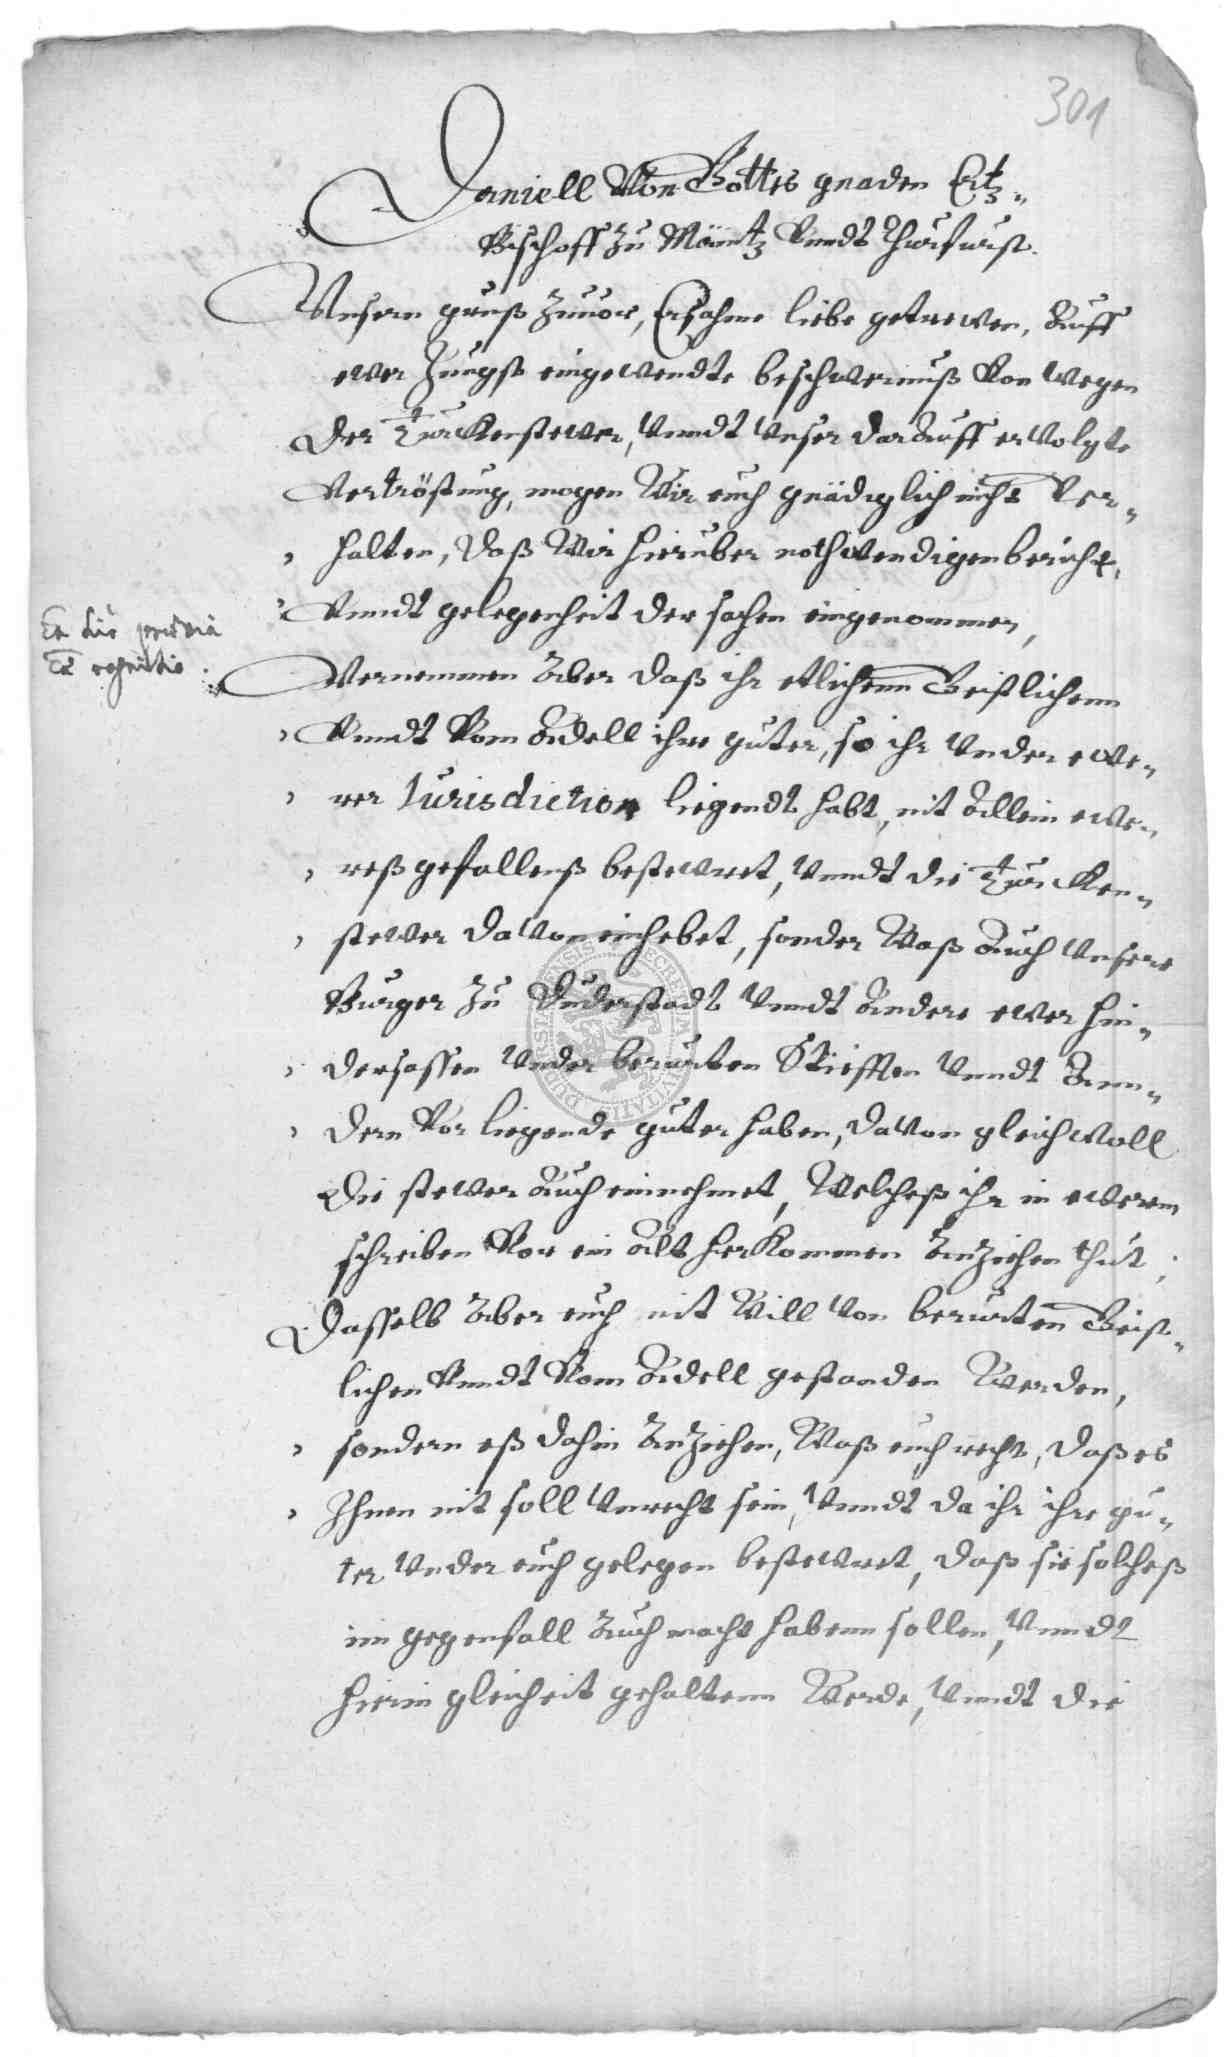 301
Daniell Von Gottes gnaden Ertz-
Bischoff zu Mäintz Vnndt Churfurst.
Vnsern gruß zuuor, Ersahme liebe getrewen, Auff
ewer Jungst eingewendte beschwernuß Von wegen
der Turckenstewer, Vnndt Vnser darauff ervolgte
Vertröstung, mogen Wir euch gnädiglich nicht Ver-
halten, daß Wir hieruber nothwendigen bericht,
Vnndt gelegenheit der sachen eingenommen,
Vernemmen Aber daß ihr etlichenn Geistlichenn
Vnndt Vom Adell ihre guter, so ihr Vnder ewe-
rer Iurisdiction liegendt habt, nit Allein ewe-
reß gefallenß bestewret, Vnndt die Turcken-
stewer davon einhebet, sonder Waß Auch Vnsere
Burger zu Duderstadt Vnndt Andere ewer hin-
dersassen Vnder berurten Stiefften Vnndt Ann-
dern Vor liegende guter haben, davon gleichwoll
die stewer Auch einnehmet, Welcheß ihr in ewerm
schreiben Vor ein Alt herkommen Anziehen thut,
Dasselb Aber euch nit Will Von berurten Geist-
lichen Vnndt Vom Adell gestanden Werden,
sondern eß dahin Anziehen, Waß euch recht, daß es
Ihnen nit soll Vnrecht sein, Vnndt da ihr ihre gu-
ter Vnder euch gelegen bestewret, daß sie solcheß
im gegenfall Auch macht habenn sollen, Vnndt
hierin gleicheit gehaltenn Werde, Vnndt die